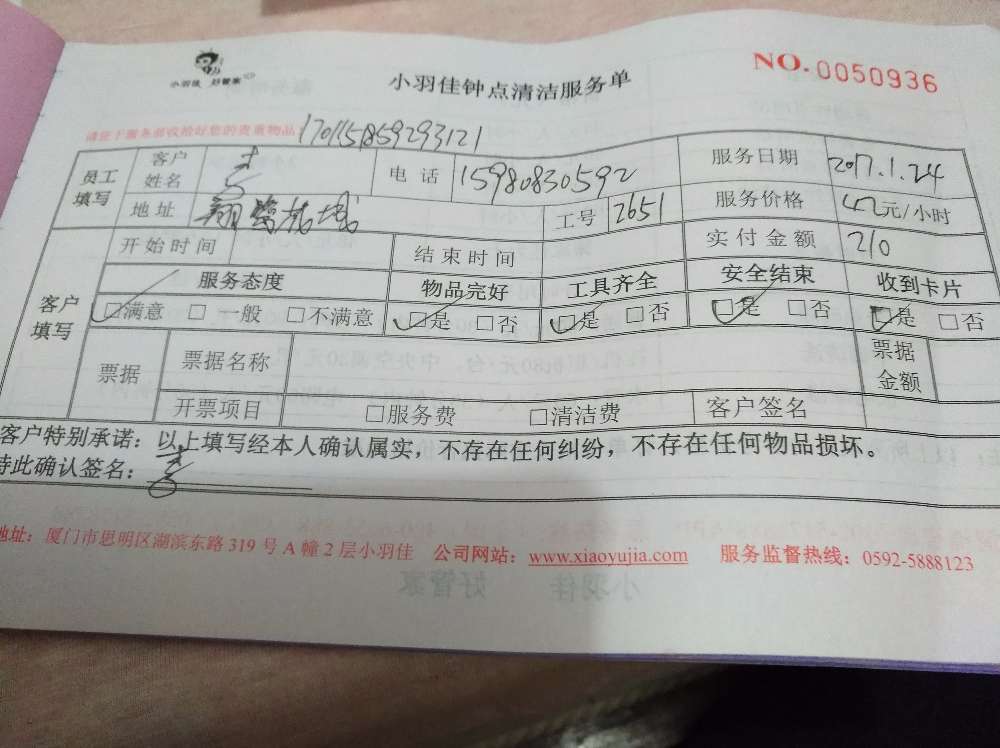 小羽佳 好管家
小羽佳钟点清洁服务单
NO.0050936
请您于服务前收拾好您的贵重物品:
170115859293121
员工填写 客户姓名 电话 15980830592 服务日期 2017.1.24
地址 工号 2651 服务价格 42元/小时
客户填写 开始时间 结束时间 实付金额 210
服务态度 物品完好 工具齐全 安全结束 收到卡片
□满意 □一般 □不满意 □是 □否 □是 □否 □是 □否 □是 □否
票据 票据名称 票据金额
开票项目 □服务费 □清洁费 客户签名
客户特别承诺：以上填写经本人确认属实，不存在任何纠纷，不存在任何物品损坏。
特此确认签名：
地址：厦门市思明区湖滨东路 319 号 A 幢 2 层小羽佳 公司网站：www.xiaoyujia.com 服务监督热线：0592-5888123